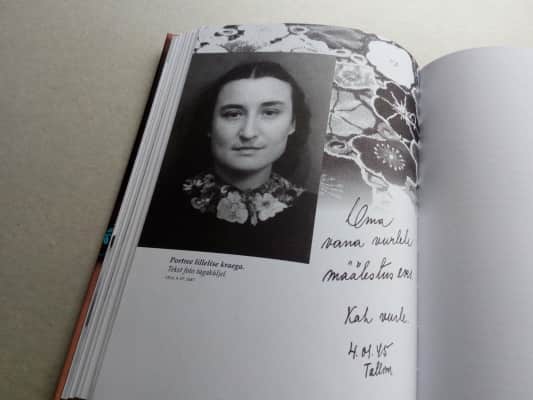 Portree lillelise kraega.
Tekst foto tagaküljel.
Oma
vana vurlele
mäelestuseks.
Kah vurle.
4.01.45
Tallinn